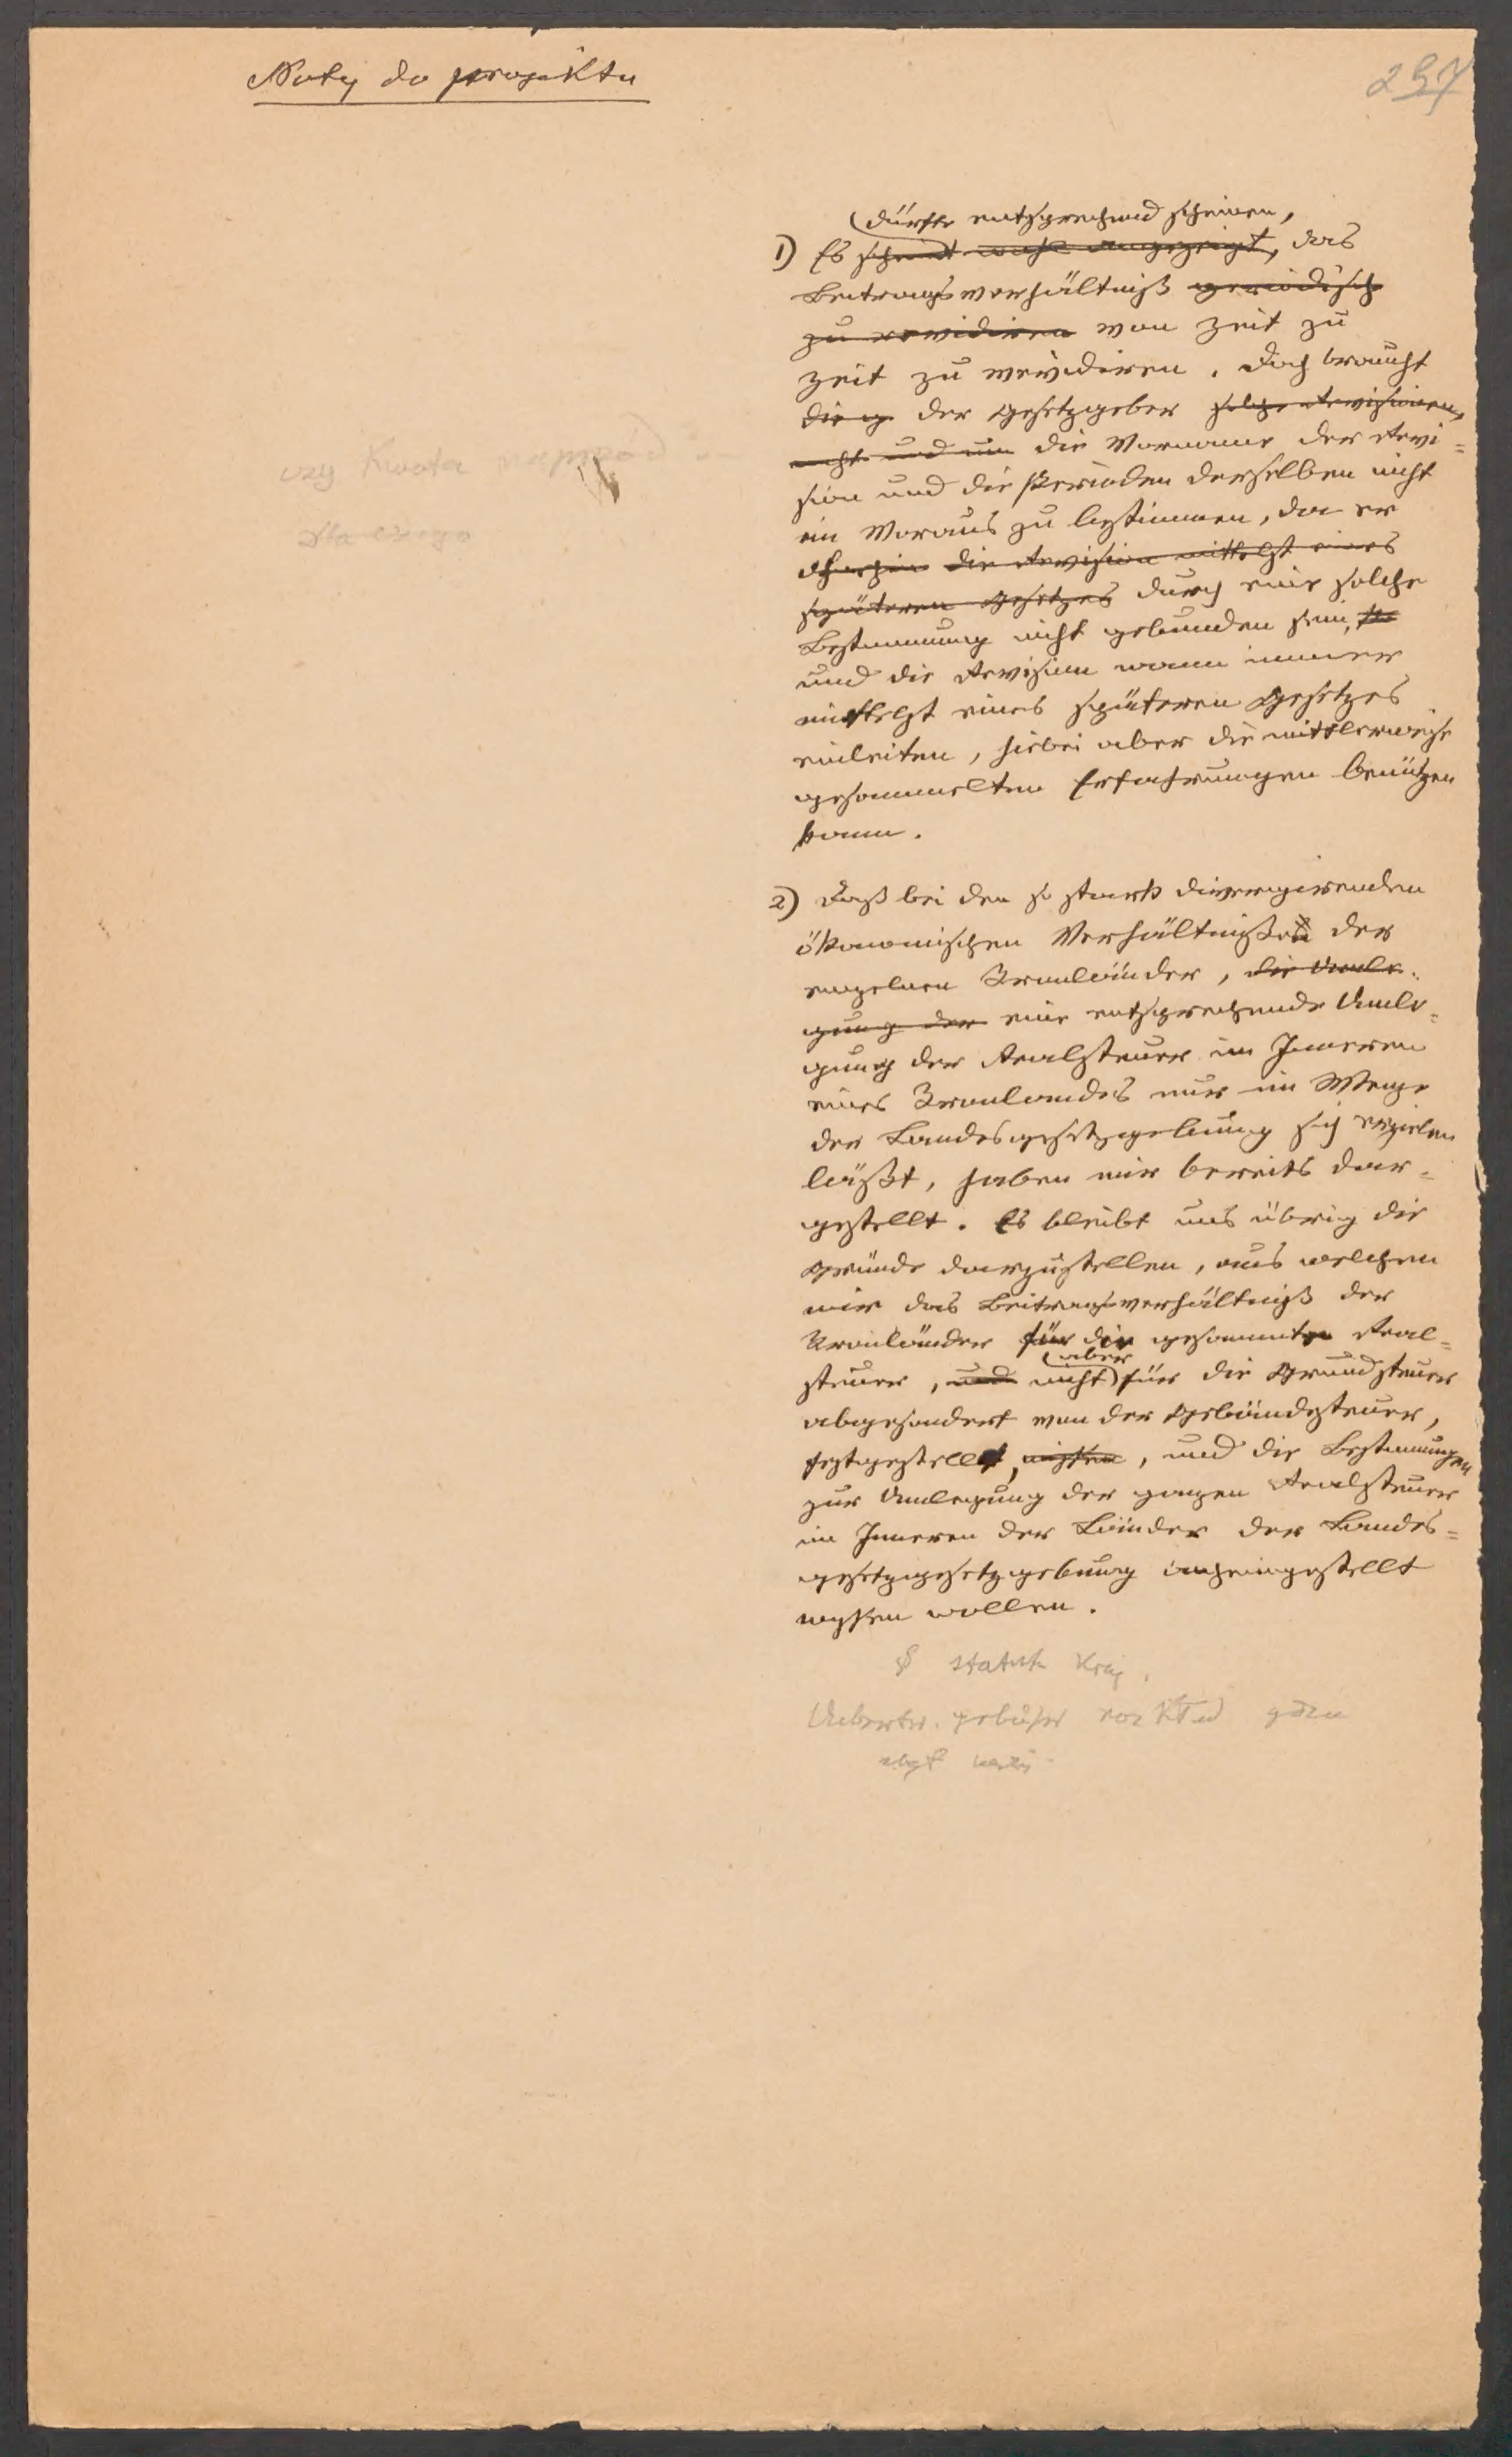 Noty do projektu
257
dürfte entsprechend scheinen,
1) Es scheint wohl angezeigt, das
Beitragsverhältniß periodisch
zu revidiren von Zeit zu
Zeit zu revidiren. Doch braucht
die g der Gesetzgeber solche Revisionen
nicht und nun die Vorname der Revi=
sion und die Perioden derselben nicht
im Voraus zu bestimmen, da er
ohnehin die Revision mittelst eines
späteren Gesetzes durch eine solche
Bestimmung nicht gebunden sein,
und die Revision wann immer
mittelst eines späteren Gesetzes
einleiten, hiebei aber die mittlerweile
gesammelten Erfahrungen benützen
kann.
2) Daß bei den so stark divergirenden
ökonomischen Verhältnißen der
einzelnen Kronländer, die Umle=
gung der eine entsprechende Umle=
gung der Realsteuer im Inneren
eines Kronlandes nur im Wege
der Landesgesetzgebung sich erzielen
läßt, haben wir bereits dar=
gestellt. Es bleibt uns übrig die
Gründe darzustellen, aus welchen
wir das Beitragsverhältniß der
Kronländer für die gesammte Real=
aber
steuer, und nicht für die Grundsteuer
abgesondert von der Gebäudesteuer,
festgestellt, wißen, und die Bestimmungen
zur Umlegung der ganzen Realsteuer
im Inneren der Länder der Landes=
gesetzgesetzgebung anheimgestellt
wißen wollen.
czy Kwota naprzód
dla czego
§ statut Kraj.